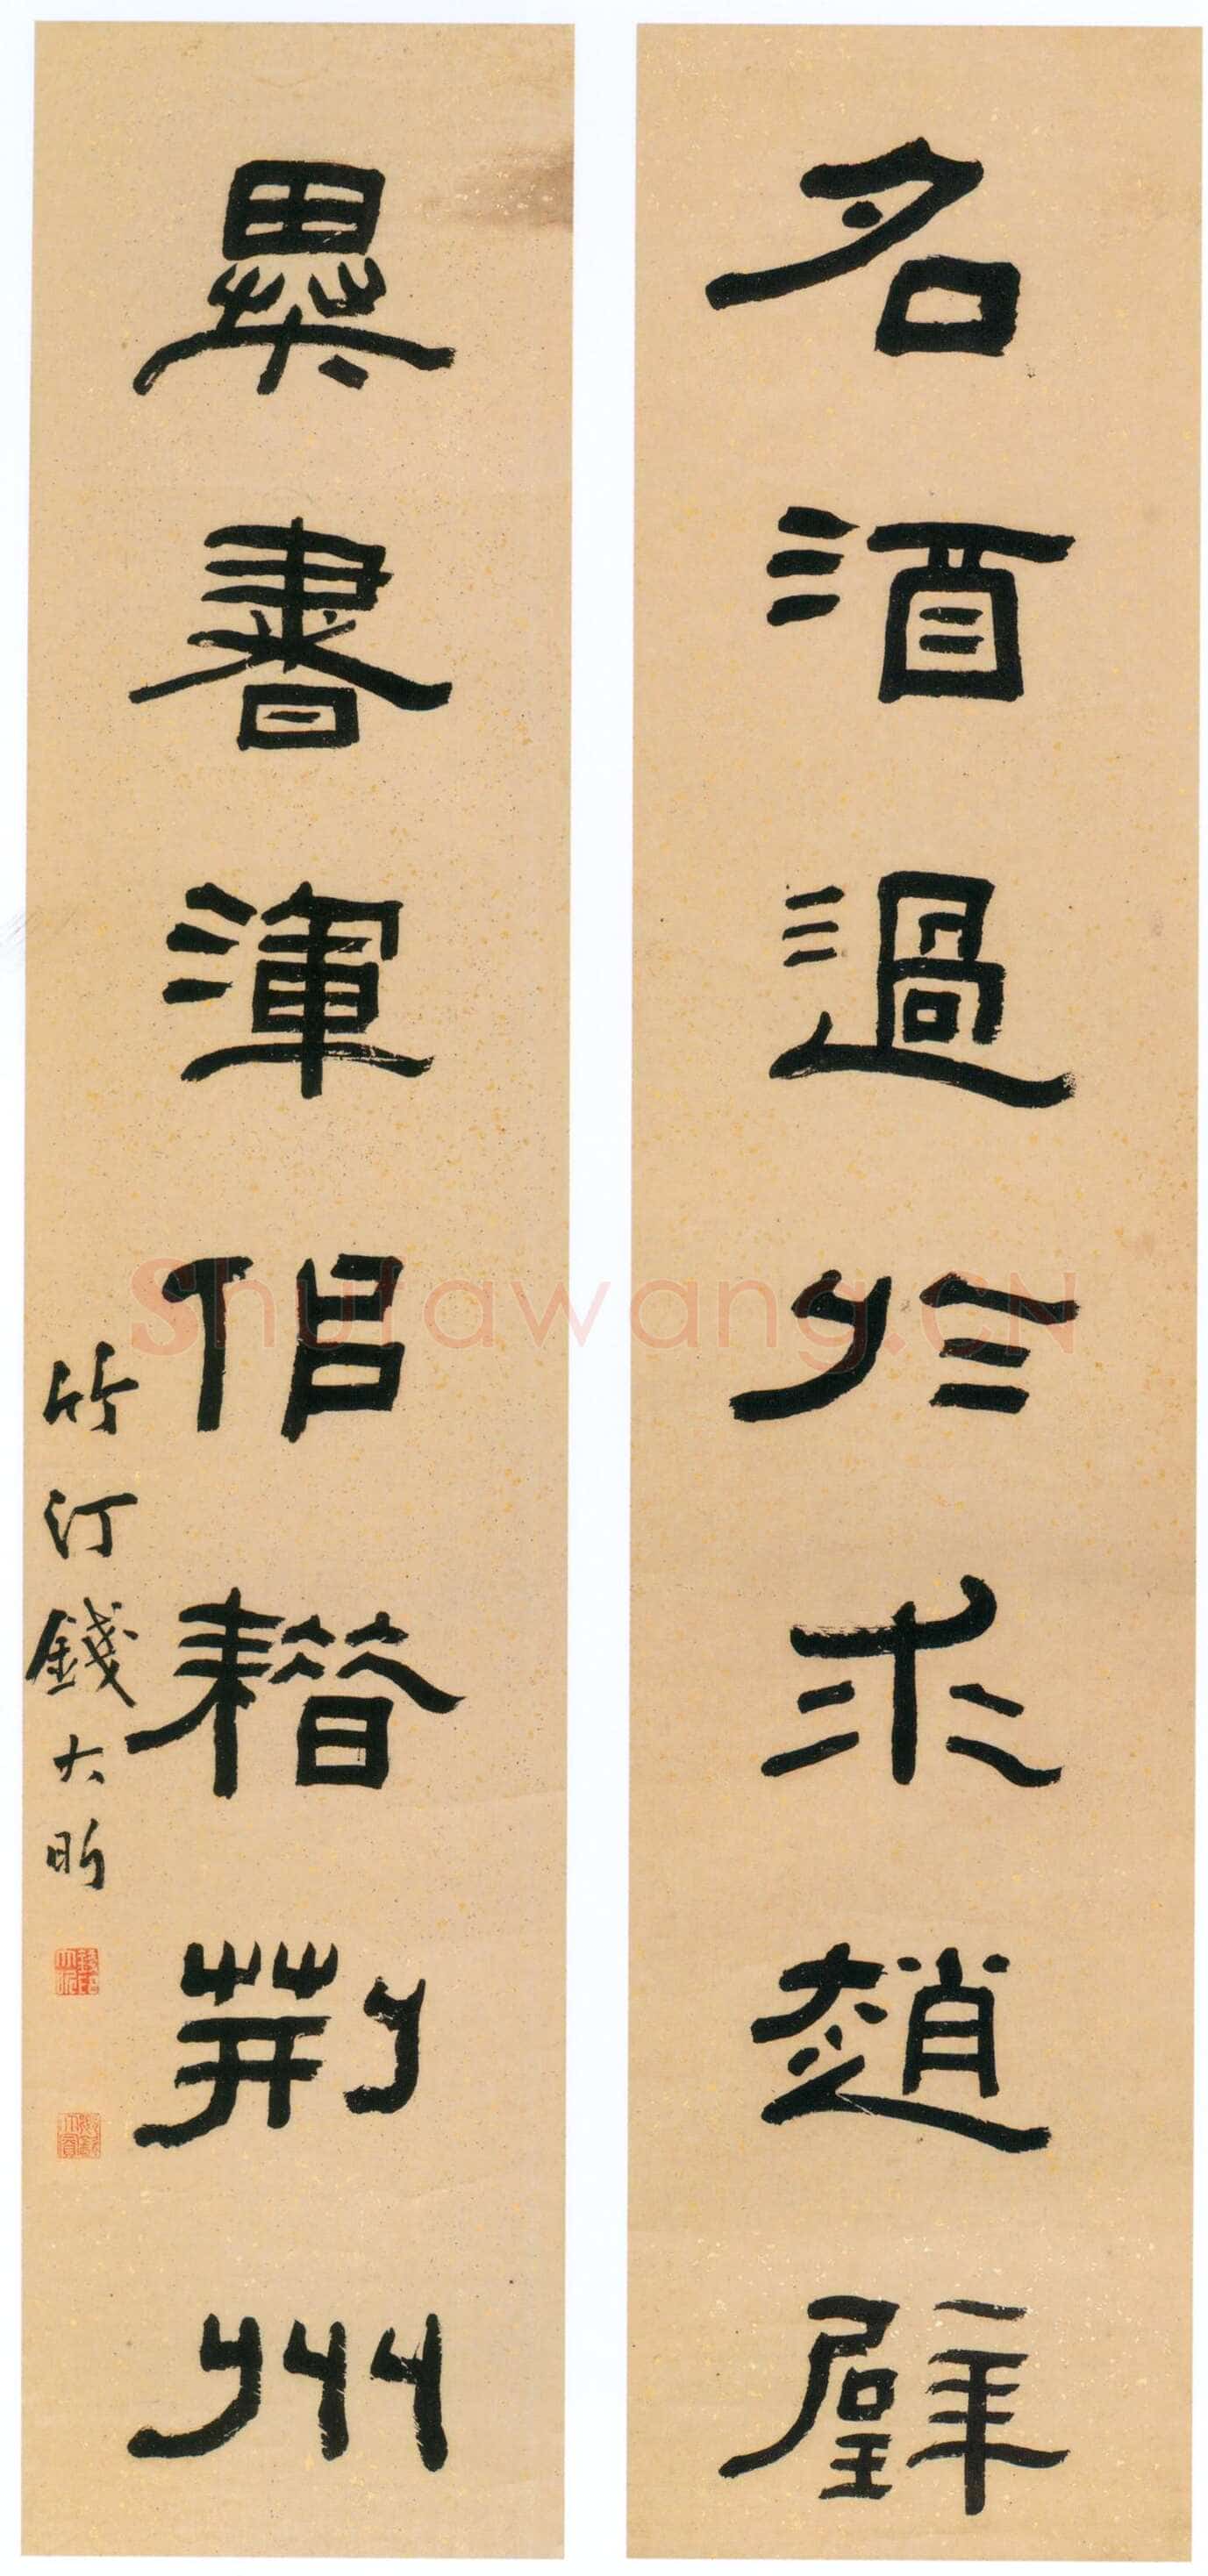 名酒過於求趙璧
異書渾侣耤荆州
竹汀錢大昕
Shufawang.CN